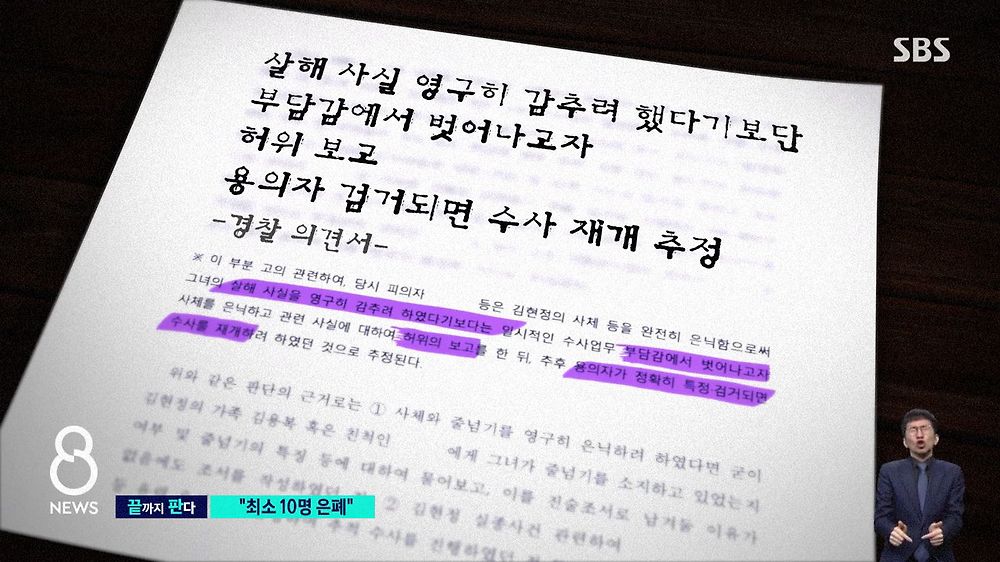 SBS
살해 사실 영구히 감추려 했다기보단
부담감에서 벗어나고자
허위 보고
용의자 검거되면 수사 재개 추정
-경찰 의견서-
※ 이 부분 고의 관련하여, 당시 피의자 등은 김현정의 사체 등을 완전히 은닉함으로써
그녀의 살해 사실을 영구히 감추려 하였다기보다는 일시적인 수사업무 부담감에서 벗어나고자
사체를 은닉하고 관련 사실에 대하여 허위의 보고를 한 뒤, 추후 용의자가 정확히 특정·검거되면
수사를 재개하려 하였던 것으로 추정된다
위와 같은 판단의 근거로는 ① 사체와 줄넘기를 영구히 은닉하려 하였다면 굳이
김현정의 가족 김용복 혹은 친척인 에게 그녀가 줄넘기를 소지하고 있었는지
여부 및 줄넘기의 특징 등에 대하여 물어보고, 이를 진술조서로 남겨둘 이유가
없음에도 조서를 작성하였던 ② 김현정 실종사건 관련하여
추적 수사를 진행하였던
8
NEWS
끝까지 판다
"최소 10명 은폐"